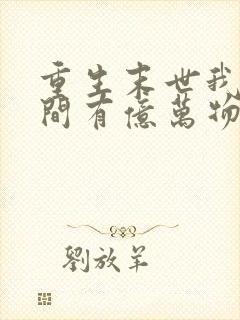 重生末世我
間有億萬物
劉放羊